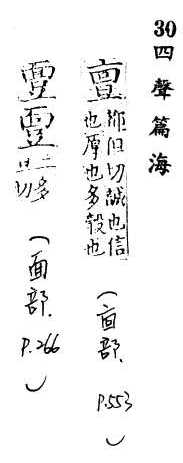 30 四聲篇海
亶 切誠也信
也厚也多穀也
(㐭部, P.553)
二多
旦切
(面部, P.266)